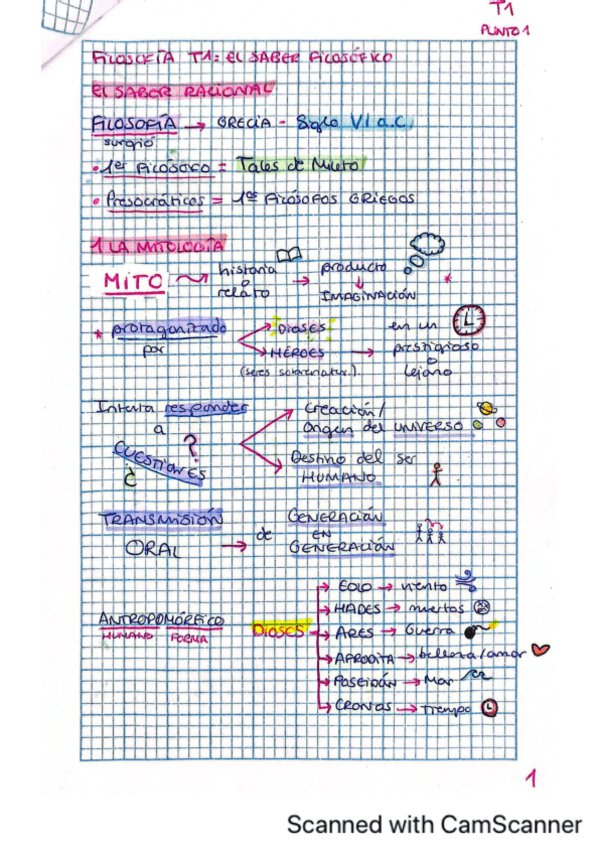 T1
PUNTO 1
FILOSOFÍA T1: EL SABER FILOSÓFICO
EL SABER RACIONAL
FILOSOFÍA → GRECIA - Siglo VI a.C.
surgió
• 1er FILÓSOFO = Tales de Mileto
• Presocráticos = 1os FILÓSOFOS GRIEGOS
1 LA MITOLOGÍA
MITO historia → producto
o
relato IMAGINACIÓN *
* protagonizado DIOSES en un
por HÉROES → prestigioso
(seres sobrenatur.) o
lejano
Intenta responder Creación/
a Origen del UNIVERSO
¿CUESTIONES? Destino del ser
HUMANO
TRANSMISIÓN GENERACIÓN
ORAL → de EN
GENERACIÓN
EOLO → viento
HADES → muertos
ANTROPOMÓRFICO DIOSES → ARES → Guerra
HUMANO FORMA
AFRODITA → belleza/amor
POSEIDÓN → Mar
CRONOS → Tiempo
1
Scanned with CamScanner